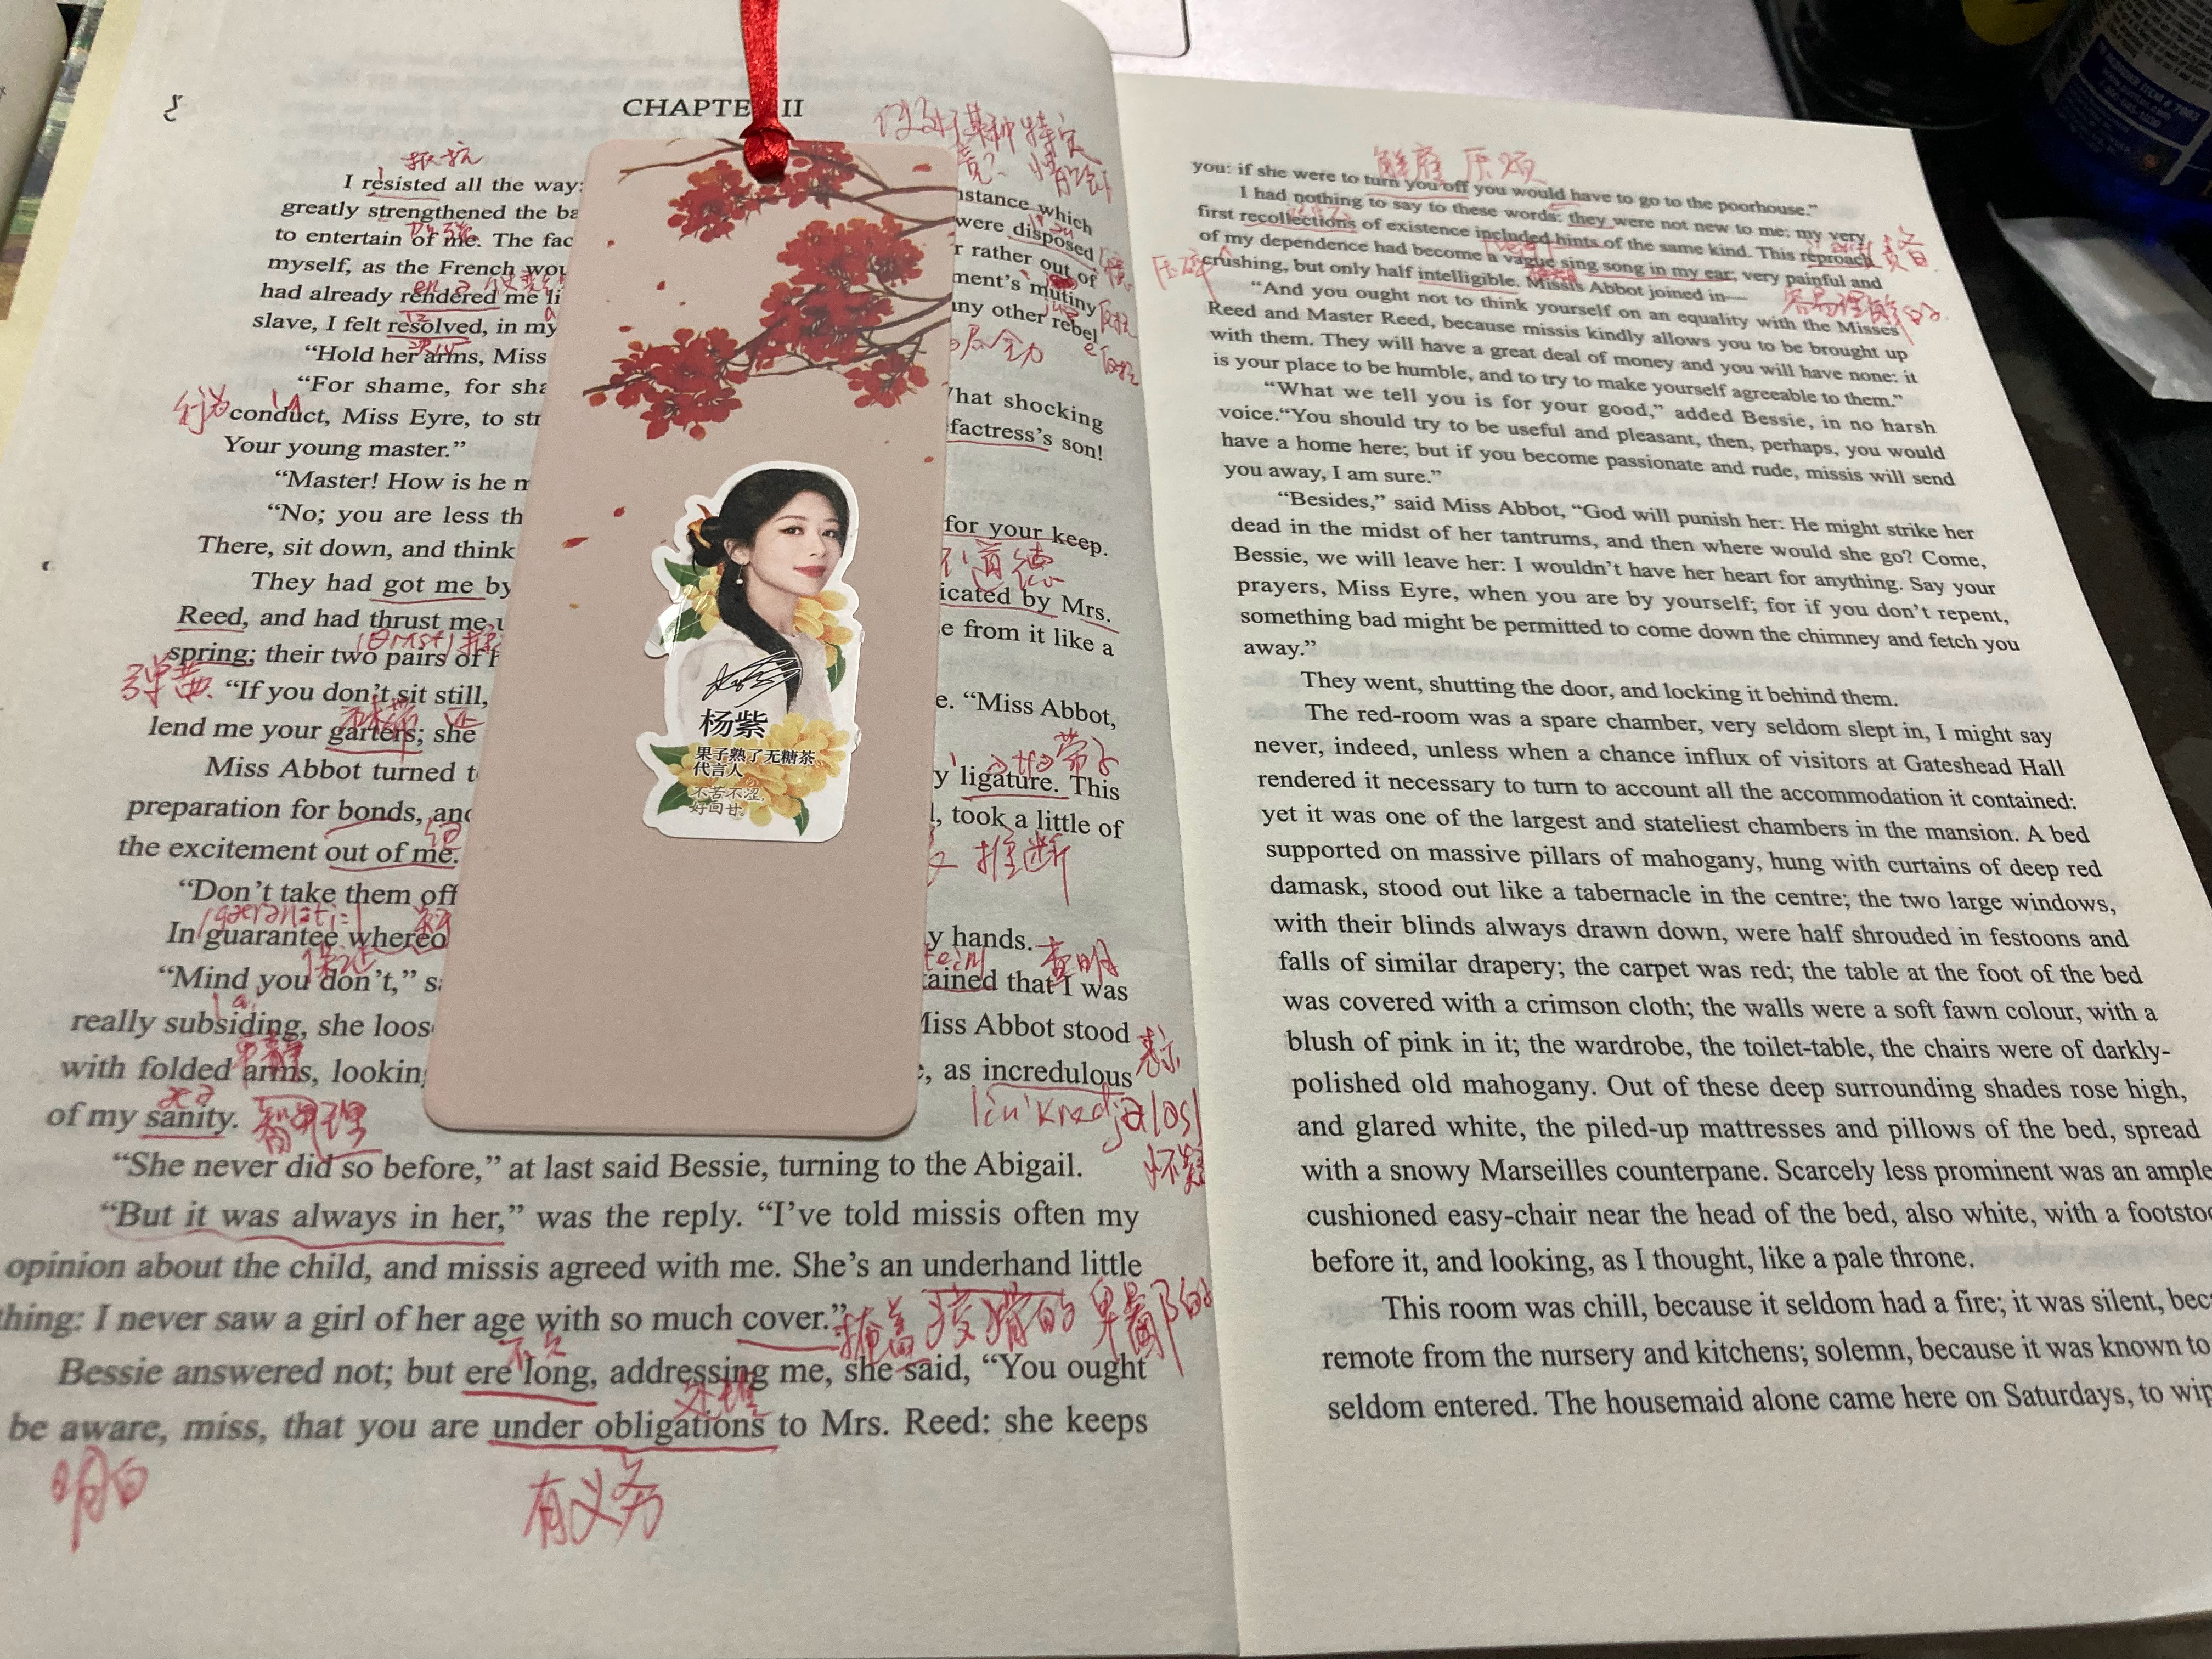 CHAPTE II
抵抗
I resisted all the way:
greatly strengthened the ba
加强
to entertain of me. The fac
myself, as the French wou
had already rendered me li
slave, I felt resolved, in my
决心
"Hold her arms, Miss
"For shame, for sha
行为
conduct, Miss Eyre, to str
Your young master."
"Master! How is he m
"No; you are less th
There, sit down, and think
They had got me by
Reed, and had thrust me u
spring; their two pairs of h
弹簧
"If you don't sit still,
lend me your garters; she
Miss Abbot turned t
preparation for bonds, and
the excitement out of me.
"Don't take them off
In guarantee whereo
保证
"Mind you don't," sa
really subsiding, she loos
平静
with folded arms, looking
of my sanity.
理
某种特定
nstance which
were disposed
r rather out of
ment's mutiny
ny other rebel
反抗
What shocking
factress's son!
for your keep.
不道德
icated by Mrs.
e from it like a
e. "Miss Abbot,
带子
y ligature. This
l, took a little of
推断
y hands.
查明
tained that I was
Miss Abbot stood
e, as incredulous
怀疑
"She never did so before," at last said Bessie, turning to the Abigail.
"But it was always in her," was the reply. "I've told missis often my
opinion about the child, and missis agreed with me. She's an underhand little
thing: I never saw a girl of her age with so much cover."
掩盖 狡猾的 卑鄙的
不久
Bessie answered not; but ere long, addressing me, she said, "You ought
be aware, miss, that you are under obligations to Mrs. Reed: she keeps
明白
有义务
杨紫
果子熟了无糖茶
代言人
不苦不涩,
好回甘
解雇
you: if she were to turn you off you would have to go to the poorhouse."
I had nothing to say to these words: they were not new to me: my very
first recollections of existence included hints of the same kind. This reproach
of my dependence had become a vague sing song in my ear; very painful and
压碎
crushing, but only half intelligible. Missis Abbot joined in—
容易理解的
"And you ought not to think yourself on an equality with the Misses
Reed and Master Reed, because missis kindly allows you to be brought up
with them. They will have a great deal of money and you will have none: it
is your place to be humble, and to try to make yourself agreeable to them."
"What we tell you is for your good," added Bessie, in no harsh
voice."You should try to be useful and pleasant, then, perhaps, you would
have a home here; but if you become passionate and rude, missis will send
you away, I am sure."
"Besides," said Miss Abbot, "God will punish her: He might strike her
dead in the midst of her tantrums, and then where would she go? Come,
Bessie, we will leave her: I wouldn't have her heart for anything. Say your
prayers, Miss Eyre, when you are by yourself; for if you don't repent,
something bad might be permitted to come down the chimney and fetch you
away."
They went, shutting the door, and locking it behind them.
The red-room was a spare chamber, very seldom slept in, I might say
never, indeed, unless when a chance influx of visitors at Gateshead Hall
rendered it necessary to turn to account all the accommodation it contained:
yet it was one of the largest and stateliest chambers in the mansion. A bed
supported on massive pillars of mahogany, hung with curtains of deep red
damask, stood out like a tabernacle in the centre; the two large windows,
with their blinds always drawn down, were half shrouded in festoons and
falls of similar drapery; the carpet was red; the table at the foot of the bed
was covered with a crimson cloth; the walls were a soft fawn colour, with a
blush of pink in it; the wardrobe, the toilet-table, the chairs were of darkly-
polished old mahogany. Out of these deep surrounding shades rose high,
and glared white, the piled-up mattresses and pillows of the bed, spread
with a snowy Marseilles counterpane. Scarcely less prominent was an ample
cushioned easy-chair near the head of the bed, also white, with a footstoo
before it, and looking, as I thought, like a pale throne.
This room was chill, because it seldom had a fire; it was silent, beca
remote from the nursery and kitchens; solemn, because it was known to
seldom entered. The housemaid alone came here on Saturdays, to wip